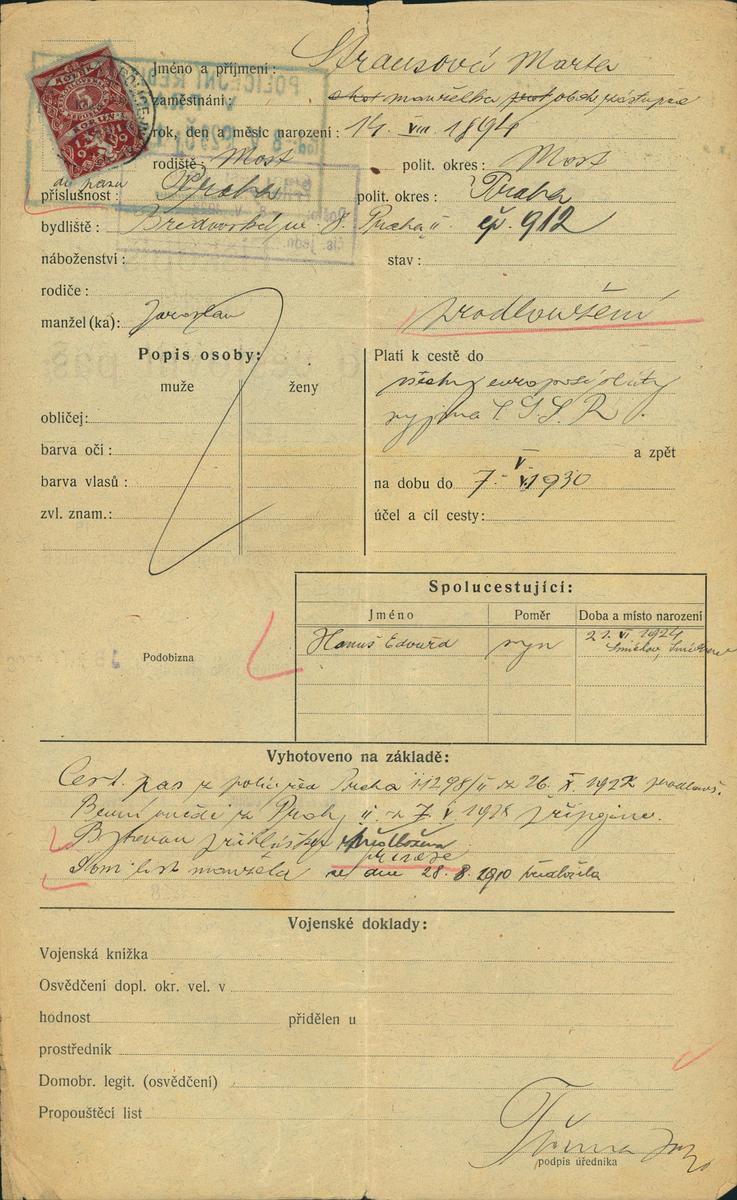 Jméno a příjmení: Strausová Marta
zaměstnání: manželka obch. zástupce
rok, den a měsíc narození: 14. VIII. 1894
rodiště: Most polit. okres: Most
do pasu
příslušnost: Praha polit. okres: Praha
bydliště: Bredovská ul. 8. Praha II. čp. 912
náboženství: stav:
rodiče:
manžel (ka): Jaroslav
prodloužení
Popis osoby:
muže ženy
obličej:
barva očí:
barva vlasů:
zvl. znam.:
Platí k cestě do
všechny evropské státy
vyjma S.S.S.R.
a zpět
na dobu do 7. V. 1930
účel a cíl cesty:
Spolucestující:
Jméno Poměr Doba a místo narození
Hanuš Edvard syn 21. VI. 1924
Smíchov,
Podobizna
Vyhotoveno na základě:
Cest. pas z polic. řed. Praha 11298/II z 26. X. 1927 prodlouž.
Praha II. z 7. V. připojeno.
přihláška předložena
přinese
Dom. list manžela ze dne 28. 8. 1910 předložila
Vojenské doklady:
Vojenská knížka
Osvědčení dopl. okr. vel. v
hodnost přidělen u
prostředník
Domobr. legit. (osvědčení)
Propouštěcí list
podpis úředníka